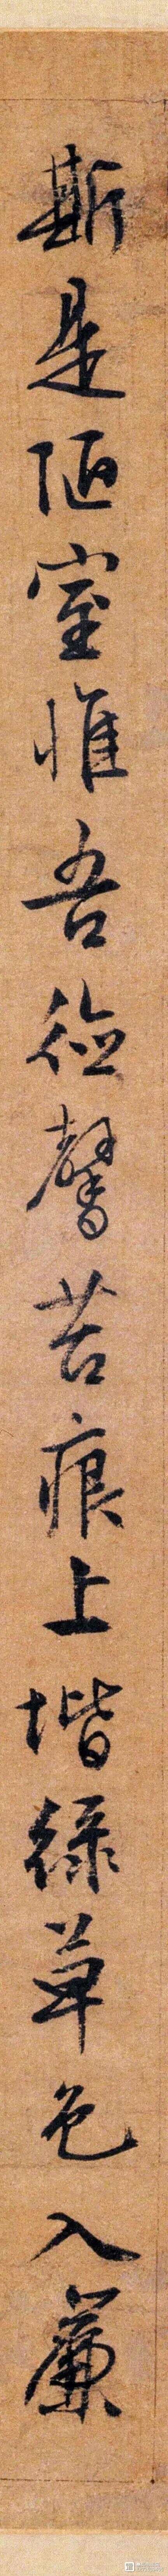 斯是陋室惟吾德馨苔痕上堦緑草色入簾